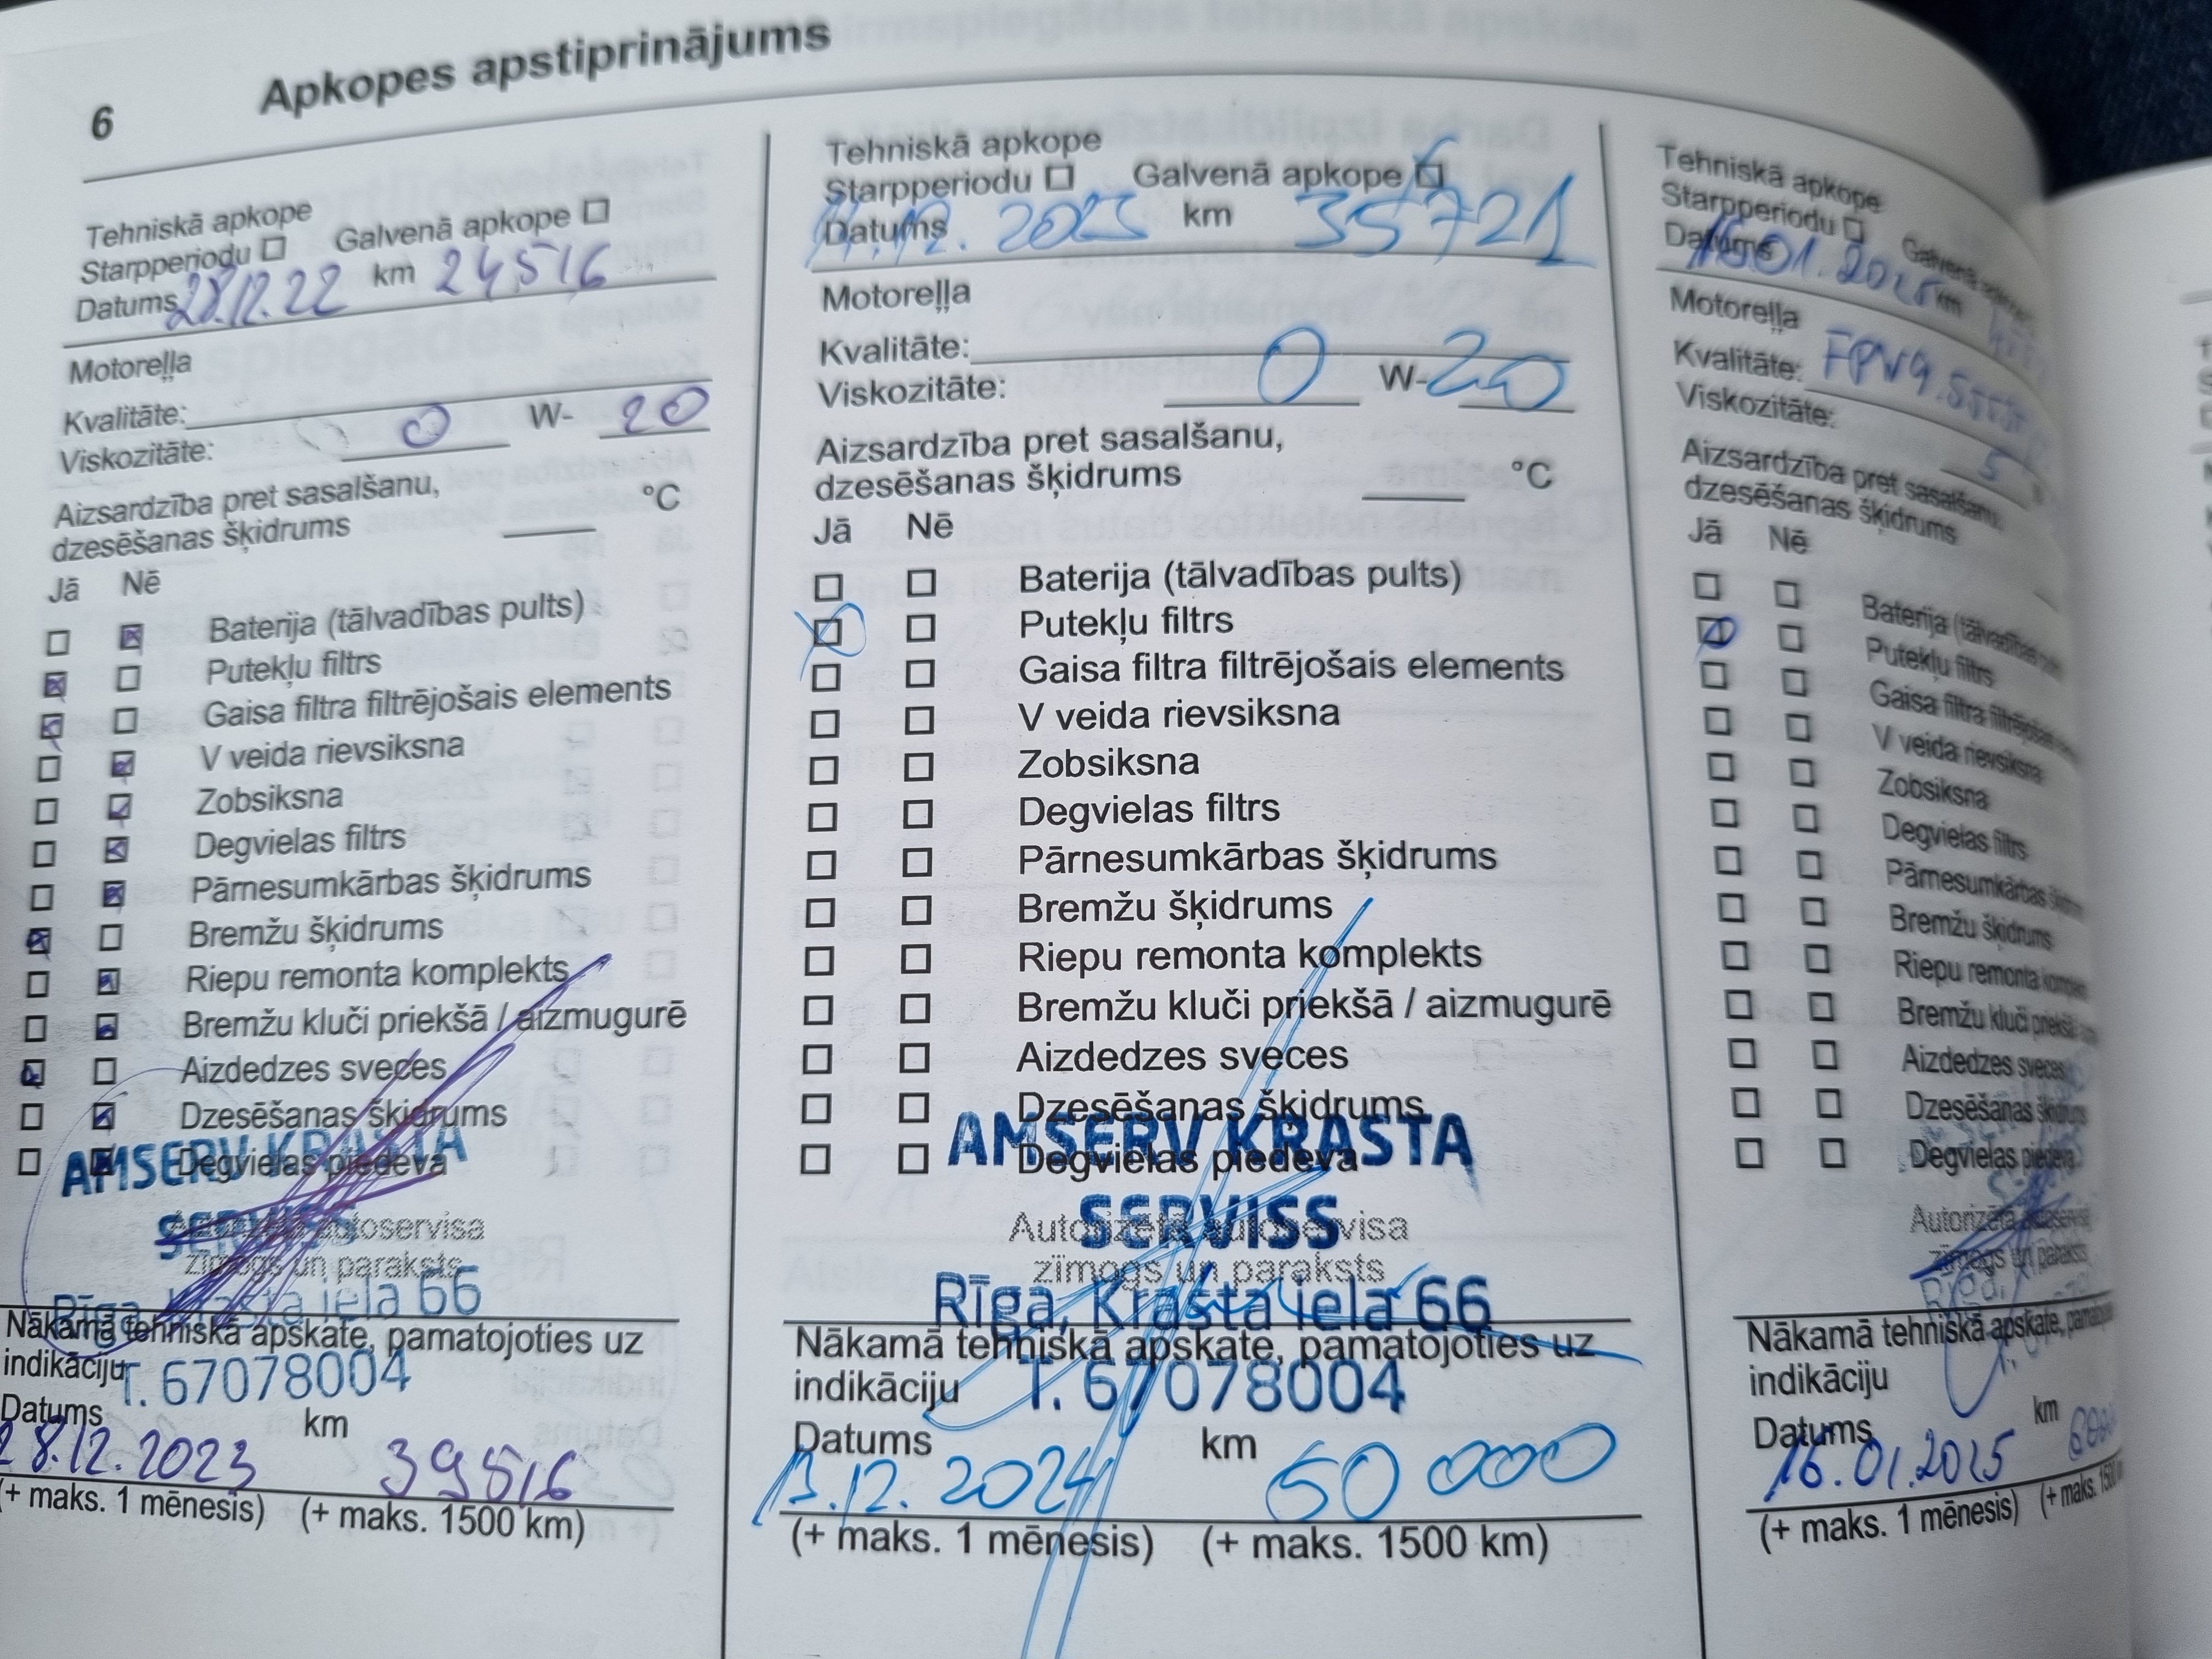 6 Apkopes apstiprinājums
Tehniskā apkope
Starpperiodu Galvenā apkope
Datums 28.12.22 km 24516
Motoreļļa
Kvalitāte:
Viskozitāte: 0 W- 20
Aizsardzība pret sasalšanu,
dzesēšanas šķidrums °C
Jā Nē
Baterija (tālvadības pults)
Putekļu filtrs
Gaisa filtra filtrējošais elements
V veida rievsiksna
Zobsiksna
Degvielas filtrs
Pārnesumkārbas šķidrums
Bremžu šķidrums
Riepu remonta komplekts
Bremžu kluči priekšā / aizmugurē
Aizdedzes sveces
Dzesēšanas šķidrums
AMSERV KRASTA
Degvielas piedeva
SERVISS
Autorizētā autoservisa
zīmogs un paraksts
Rīga, Krasta iela 66
Nākamā tehniskā apskate, pamatojoties uz
indikāciju
T. 67078004
Datums km
28.12.2023 39516
(+ maks. 1 mēnesis) (+ maks. 1500 km)
Tehniskā apkope
Starpperiodu Galvenā apkope
Datums 12. 2023 km 35721
Motoreļļa
Kvalitāte:
Viskozitāte: 0 W-20
Aizsardzība pret sasalšanu,
dzesēšanas šķidrums °C
Jā Nē
Baterija (tālvadības pults)
Putekļu filtrs
Gaisa filtra filtrējošais elements
V veida rievsiksna
Zobsiksna
Degvielas filtrs
Pārnesumkārbas šķidrums
Bremžu šķidrums
Riepu remonta komplekts
Bremžu kluči priekšā / aizmugurē
Aizdedzes sveces
Dzesēšanas šķidrums
AMSERV KRASTA
Degvielas piedeva
SERVISS
Autorizētā autoservisa
zīmogs un paraksts
Rīga, Krasta iela 66
Nākamā tehniskā apskate, pamatojoties uz
indikāciju
T. 67078004
Datums km
12. 2024 50 000
(+ maks. 1 mēnesis) (+ maks. 1500 km)
Tehniskā apkope
Starpperiodu Galvenā
Datums 16.01.2025 km
Motoreļļa
Kvalitāte:
Viskozitāte: 5
Aizsardzība pret sasalšanu,
dzesēšanas šķidrums
Jā Nē
Baterija (tālvadības
Putekļu filtrs
Gaisa filtra filtrējošais
V veida rievsiksna
Zobsiksna
Degvielas filtrs
Pārnesumkārbas
Bremžu šķidrums
Riepu remonta
Bremžu kluči priekšā
Aizdedzes sveces
Dzesēšanas šķidrums
Degvielas piedeva
Autorizētā autoservisa
zīmogs un paraksts
Nākamā tehniskā apskate,
indikāciju
Datums km
16.01.2025
(+ maks. 1 mēnesis) (+ maks.